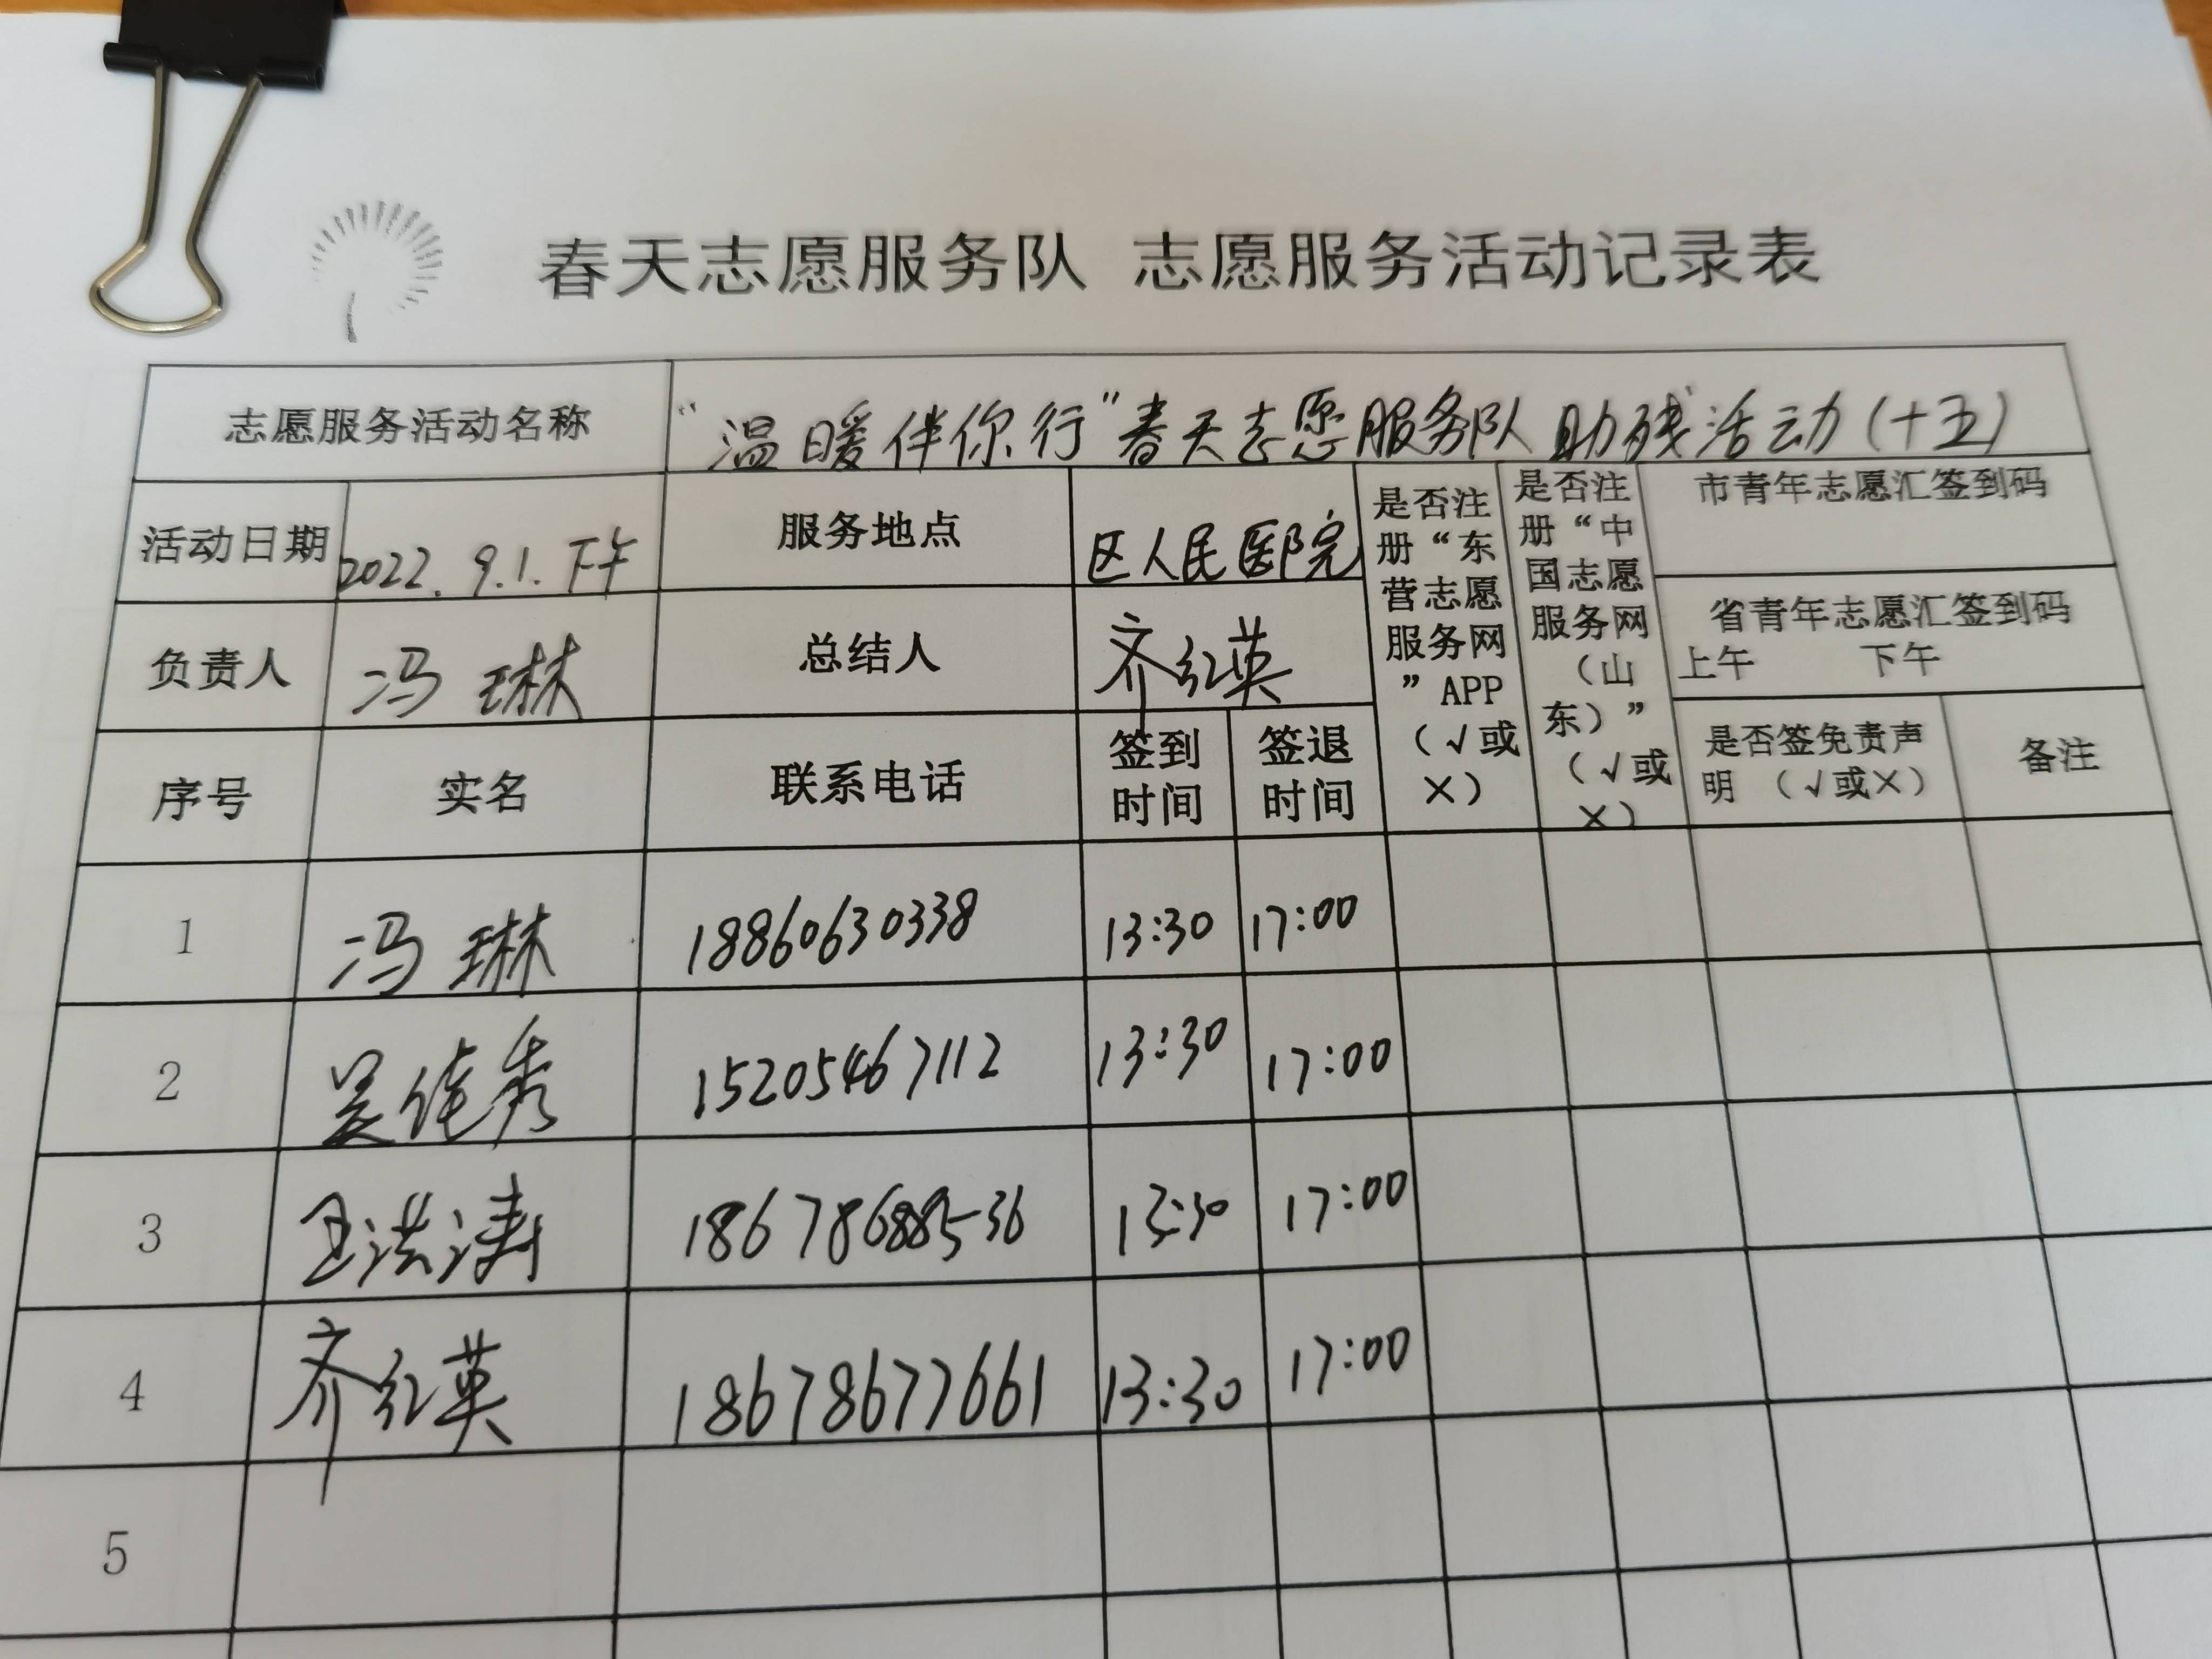 春天志愿服务队 志愿服务活动记录表
志愿服务活动名称 “温暖伴你行”春天志愿服务队助残活动(十五)
活动日期 2022.9.1.下午 服务地点 区人民医院
负责人 冯琳 总结人 齐红英
是否注册“东营志愿服务网”APP(√或×)
是否注册“中国志愿服务网(山东)”(√或×)
市青年志愿汇签到码
省青年志愿汇签到码
上午 下午
序号 实名 联系电话 签到时间 签退时间 是否签免责声明 (√或×) 备注
1 冯琳 18860630338 13:30 17:00
2 吴佳秀 15205467112 13:30 17:00
3 王洪涛 13:30 17:00
4 齐红英 18678677661 13:30 17:00
5